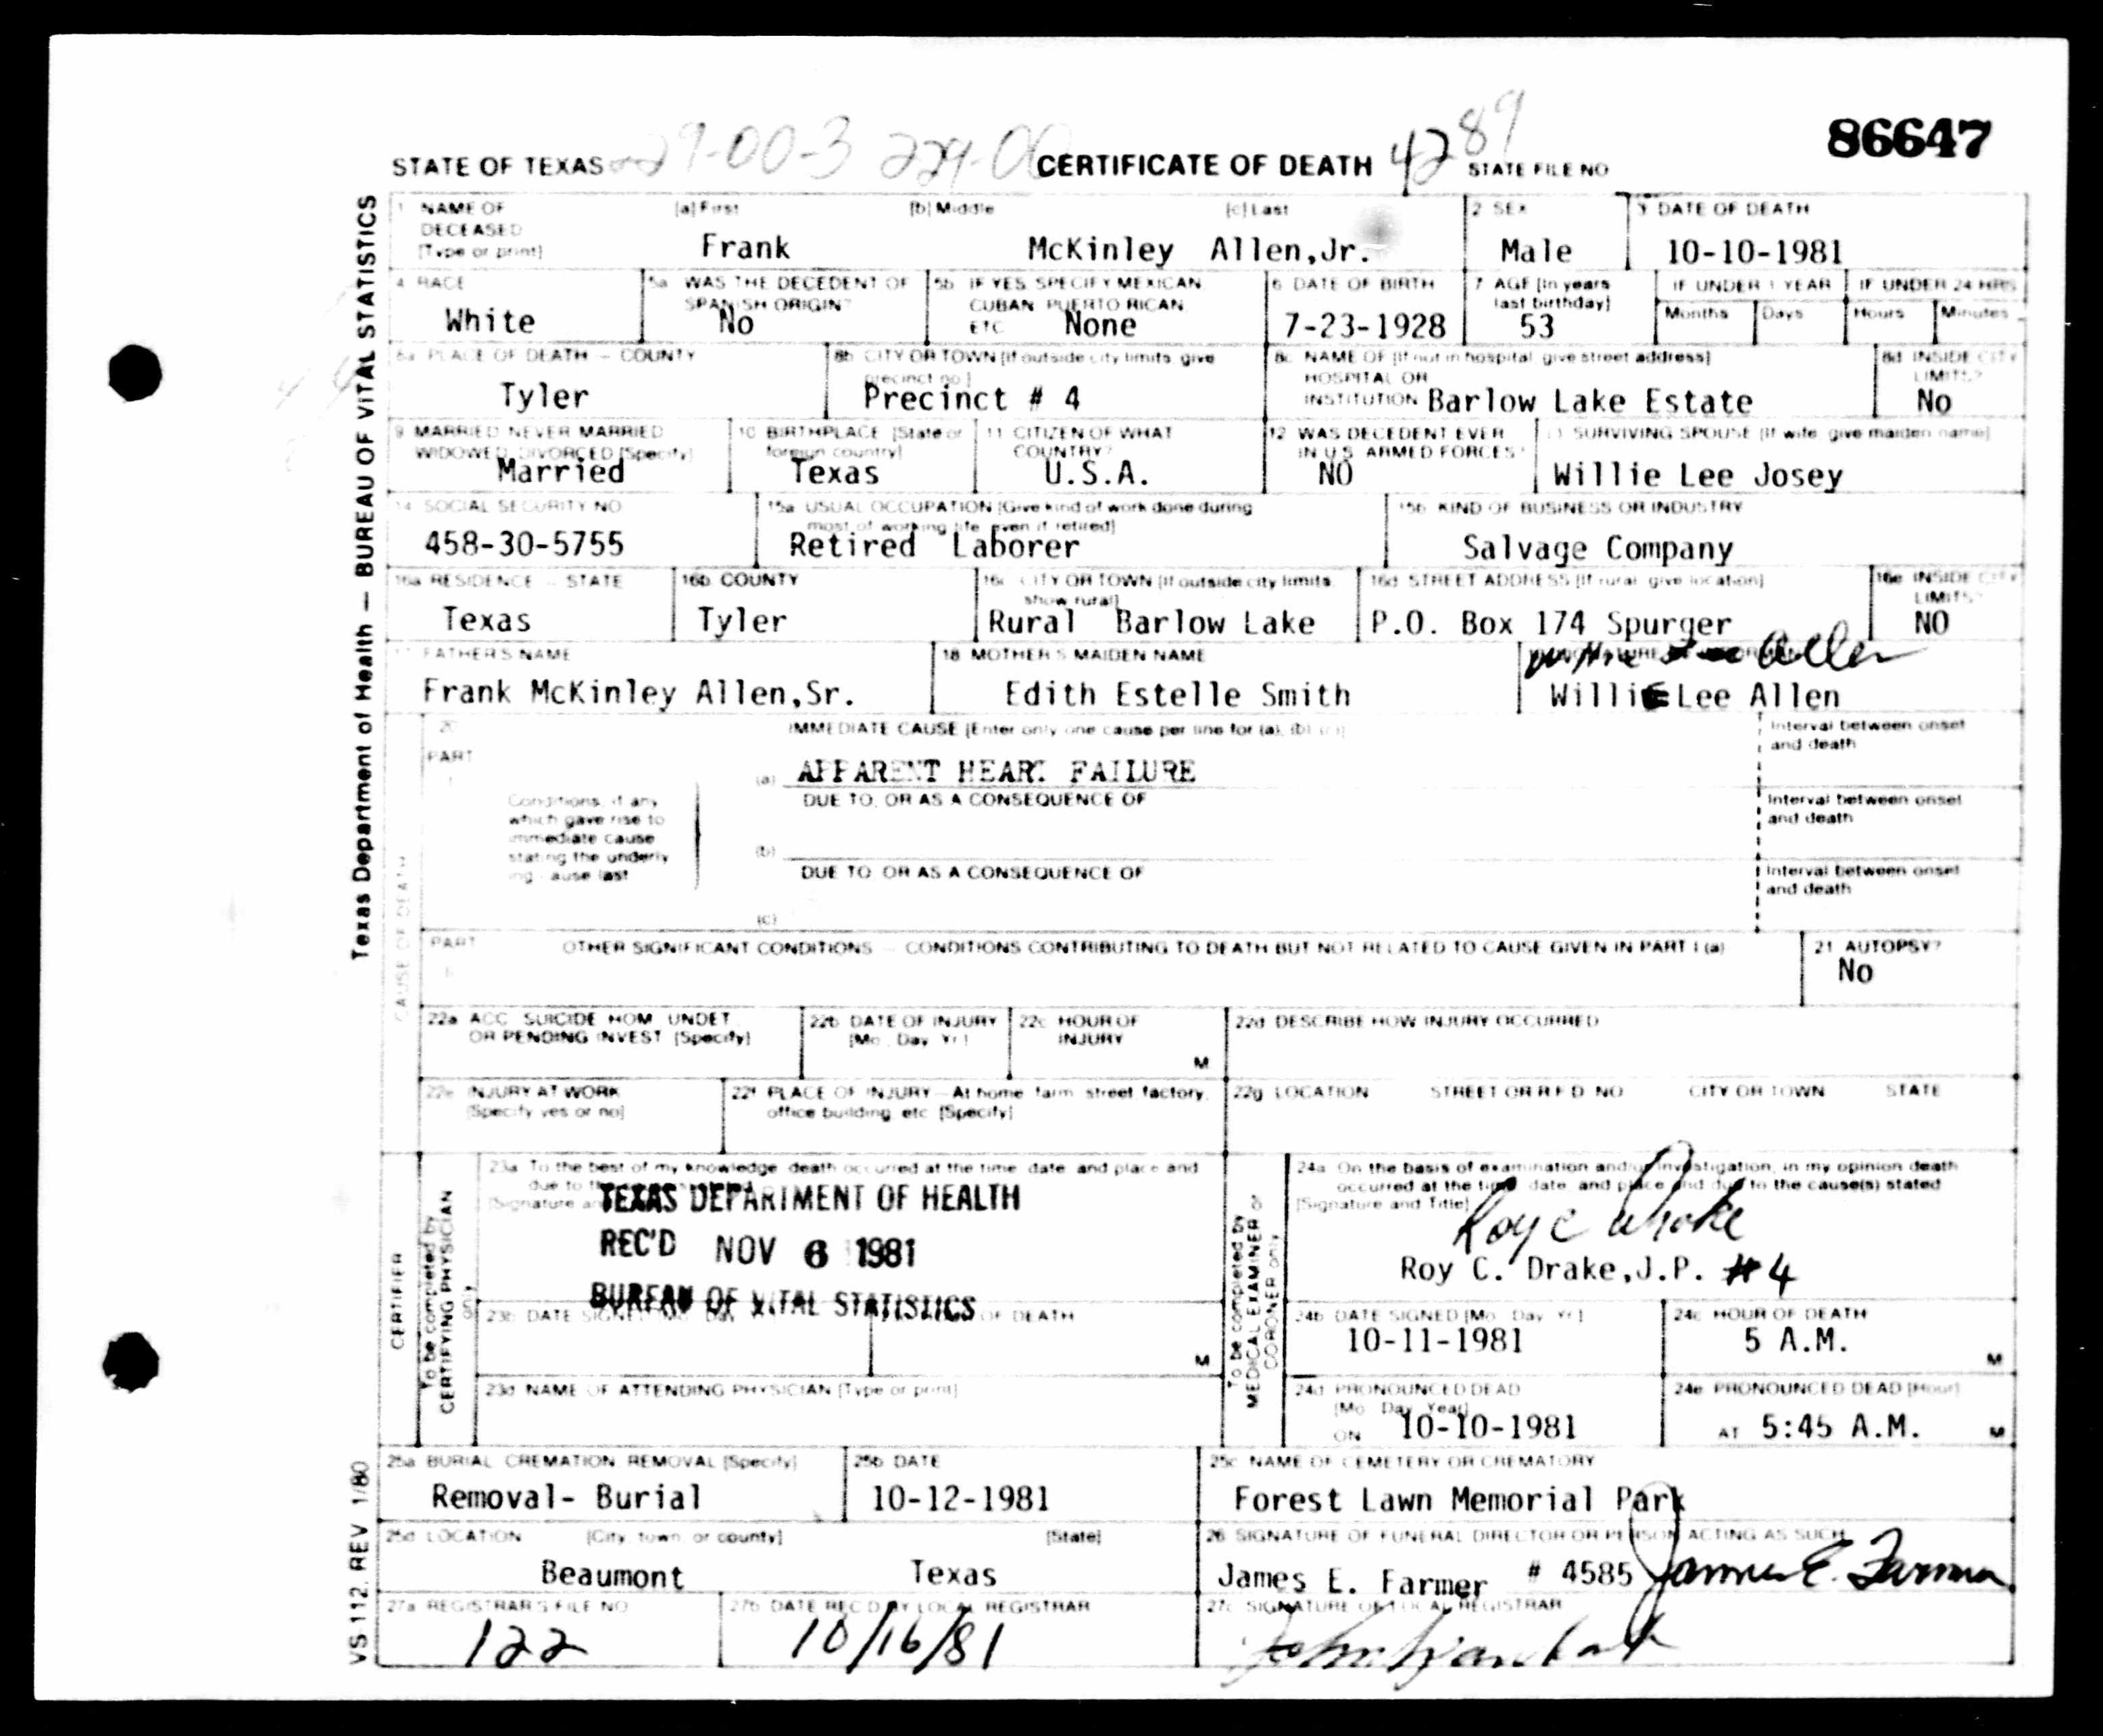 86647
STATE OF TEXAS 29-00-3 229-00 CERTIFICATE OF DEATH 4289 STATE FILE NO
Texas Department of Health — BUREAU OF VITAL STATISTICS
1 NAME OF DECEASED [Type or print] [a] First [b] Middle [c] Last 2 SEX 3 DATE OF DEATH
Frank McKinley Allen,Jr. Male 10-10-1981
4 RACE 5a WAS THE DECEDENT OF SPANISH ORIGIN? 5b IF YES SPECIFY MEXICAN CUBAN PUERTO RICAN ETC 6 DATE OF BIRTH 7 AGE [In years last birthday] IF UNDER 1 YEAR IF UNDER 24 HRS
Months Days Hours Minutes
White No None 7-23-1928 53
8a PLACE OF DEATH — COUNTY 8b CITY OR TOWN [If outside city limits give precinct no] 8c NAME OF [If not in hospital give street address] HOSPITAL OR INSTITUTION 8d INSIDE CITY LIMITS?
Tyler Precinct # 4 Barlow Lake Estate No
9 MARRIED NEVER MARRIED WIDOWED DIVORCED [Specify] 10 BIRTHPLACE [State or foreign country] 11 CITIZEN OF WHAT COUNTRY? 12 WAS DECEDENT EVER IN U.S. ARMED FORCES? 13 SURVIVING SPOUSE [If wife give maiden name]
Married Texas U.S.A. NO Willie Lee Josey
14 SOCIAL SECURITY NO 15a USUAL OCCUPATION [Give kind of work done during most of working life even if retired] 15b KIND OF BUSINESS OR INDUSTRY
458-30-5755 Retired Laborer Salvage Company
16a RESIDENCE — STATE 16b COUNTY 16c CITY OR TOWN [If outside city limits show rural] 16d STREET ADDRESS [If rural give location] 16e INSIDE CITY LIMITS?
Texas Tyler Rural Barlow Lake P.O. Box 174 Spurger NO
17 FATHER'S NAME 18 MOTHER'S MAIDEN NAME Allen
Frank McKinley Allen,Sr. Edith Estelle Smith Willie Lee Allen
20 IMMEDIATE CAUSE [Enter only one cause per line for (a), (b) (c)] Interval between onset and death
PART I
(a) APPARENT HEART FAILURE
Conditions, if any which gave rise to immediate cause stating the underlying cause last
DUE TO, OR AS A CONSEQUENCE OF Interval between onset and death
(b)
DUE TO OR AS A CONSEQUENCE OF Interval between onset and death
(c)
CAUSE OF DEATH
PART II OTHER SIGNIFICANT CONDITIONS — CONDITIONS CONTRIBUTING TO DEATH BUT NOT RELATED TO CAUSE GIVEN IN PART I (a) 21 AUTOPSY?
No
22a ACC SUICIDE HOM UNDET OR PENDING INVEST [Specify] 22b DATE OF INJURY [Mo Day Yr] 22c HOUR OF INJURY M 22d DESCRIBE HOW INJURY OCCURRED
22e INJURY AT WORK [Specify yes or no] 22f PLACE OF INJURY — At home farm street factory, office building etc [Specify] 22g LOCATION STREET OR R F D NO CITY OR TOWN STATE
CERTIFIER
To be completed by CERTIFYING PHYSICIAN only
23a To the best of my knowledge death occurred at the time date and place and due to
[Signature
TEXAS DEPARTMENT OF HEALTH
REC'D NOV 6 1981
BUREAU OF VITAL STATISTICS
23b DATE SIGNED Mo Day OF DEATH M
23d NAME OF ATTENDING PHYSICIAN [Type or print]
To be completed by MEDICAL EXAMINER or CORONER only
24a On the basis of examination and/or investigation, in my opinion death occurred at the time date and place and due to the cause(s) stated
[Signature and Title]
Roy C Drake
Roy C. Drake,J.P. #4
24b DATE SIGNED [Mo Day Yr] 24c HOUR OF DEATH
10-11-1981 5 A.M. M
24d PRONOUNCED DEAD [Mo Day Year] 24e PRONOUNCED DEAD [Hour]
ON 10-10-1981 AT 5:45 A.M. M
25a BURIAL CREMATION REMOVAL [Specify] 25b DATE 25c NAME OF CEMETERY OR CREMATORY
Removal- Burial 10-12-1981 Forest Lawn Memorial Park
25d LOCATION [City town or county] [State] 26 SIGNATURE OF FUNERAL DIRECTOR OR PERSON ACTING AS SUCH
Beaumont Texas James E. Farmer # 4585 James E. Farmer
27a REGISTRAR'S FILE NO 27b DATE REC'D BY LOCAL REGISTRAR 27c SIGNATURE OF LOCAL REGISTRAR
122 10/16/81
VS-112, REV 1/80